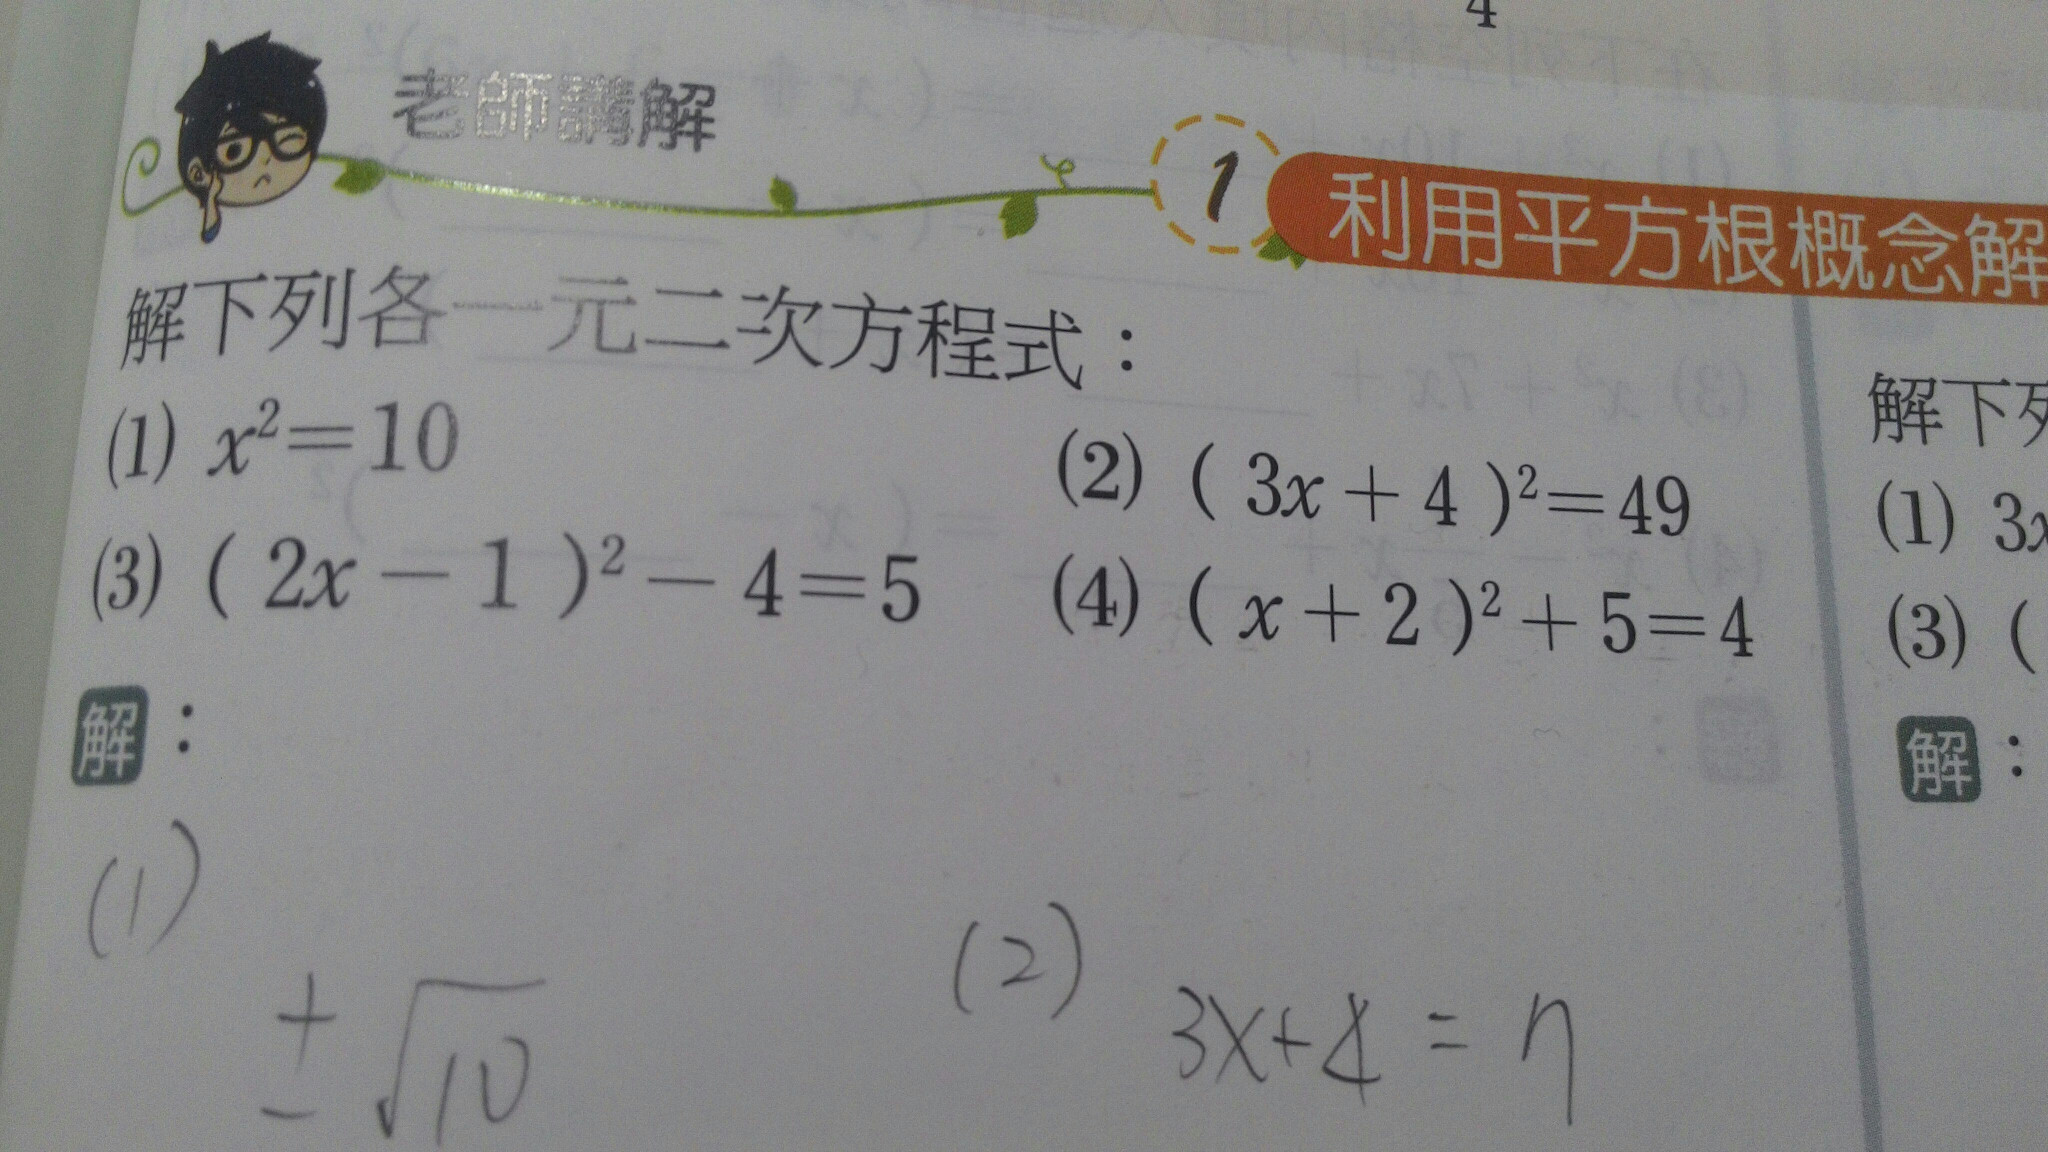 4
老師講解
1 利用平方根概念解
解下列各一元二次方程式：
(1) x²=10
(2) ( 3x + 4 )²=49
(3) ( 2x − 1 )² − 4=5
(4) ( x + 2 )² + 5=4
解：
(1)
± √10
(2)
3x+4 = 7
解下列
(1) 3x
(3) (
解：